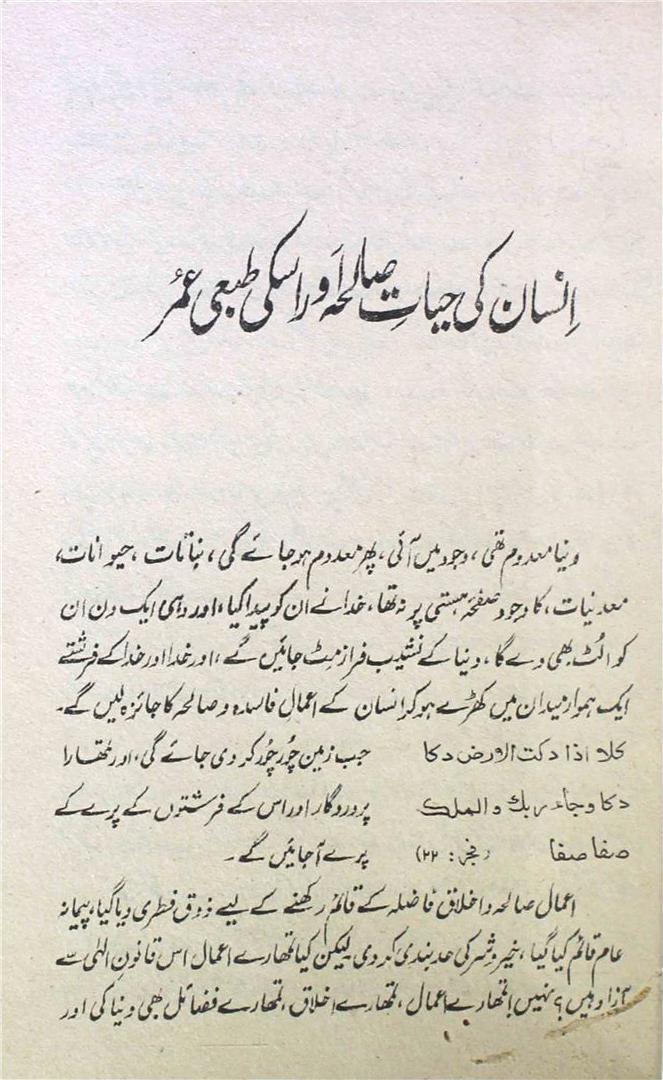 اِنسان کی حیاتِ صالحہ اَور اسکی طبعی عمرُ
دنیا معدوم تھی، وجود میں آئی، پھر معدوم ہوجائے گی، نباتات، حیوانات،
معدنیات، کا وجود صفحۂ ہستی پر نہ تھا، خدا نے ان کو پیدا کیا، اور وہی ایک دن ان
کو الٹ بھی دے گا، دنیا کے نشیب فراز مِٹ جائیں گے، اور خدا اور خدا کے فرشتے
ایک ہموار میدان میں کھڑے ہوکر انسان کے اعمال فاسدہ و صالحہ کا جائزہ لیں گے۔
کلا اذا دکت الارض دکا جب زمین چُور چُور کر دی جائے گی، اور تمھارا
دکا وجاء ربك والملك پروردگار اور اس کے فرشتوں کے پرے کے
صفا صفا (فجر: ۲۲) پرے آجائیں گے۔
اعمال صالحہ و اخلاق فاضلہ کے قائم رکھنے کے لیے ذوق فطری دیا گیا، پیمانہ
عام قائم کیا گیا، خیر و شر کی حد بندی کر دی لیکن کیا تمھارے اعمال اس قانونِ الٰہی سے
آزاد ہیں؟ نہیں! تمھارے اعمال، تمھارے اخلاق، تمھارے فضائل بھی دنیا کی اور